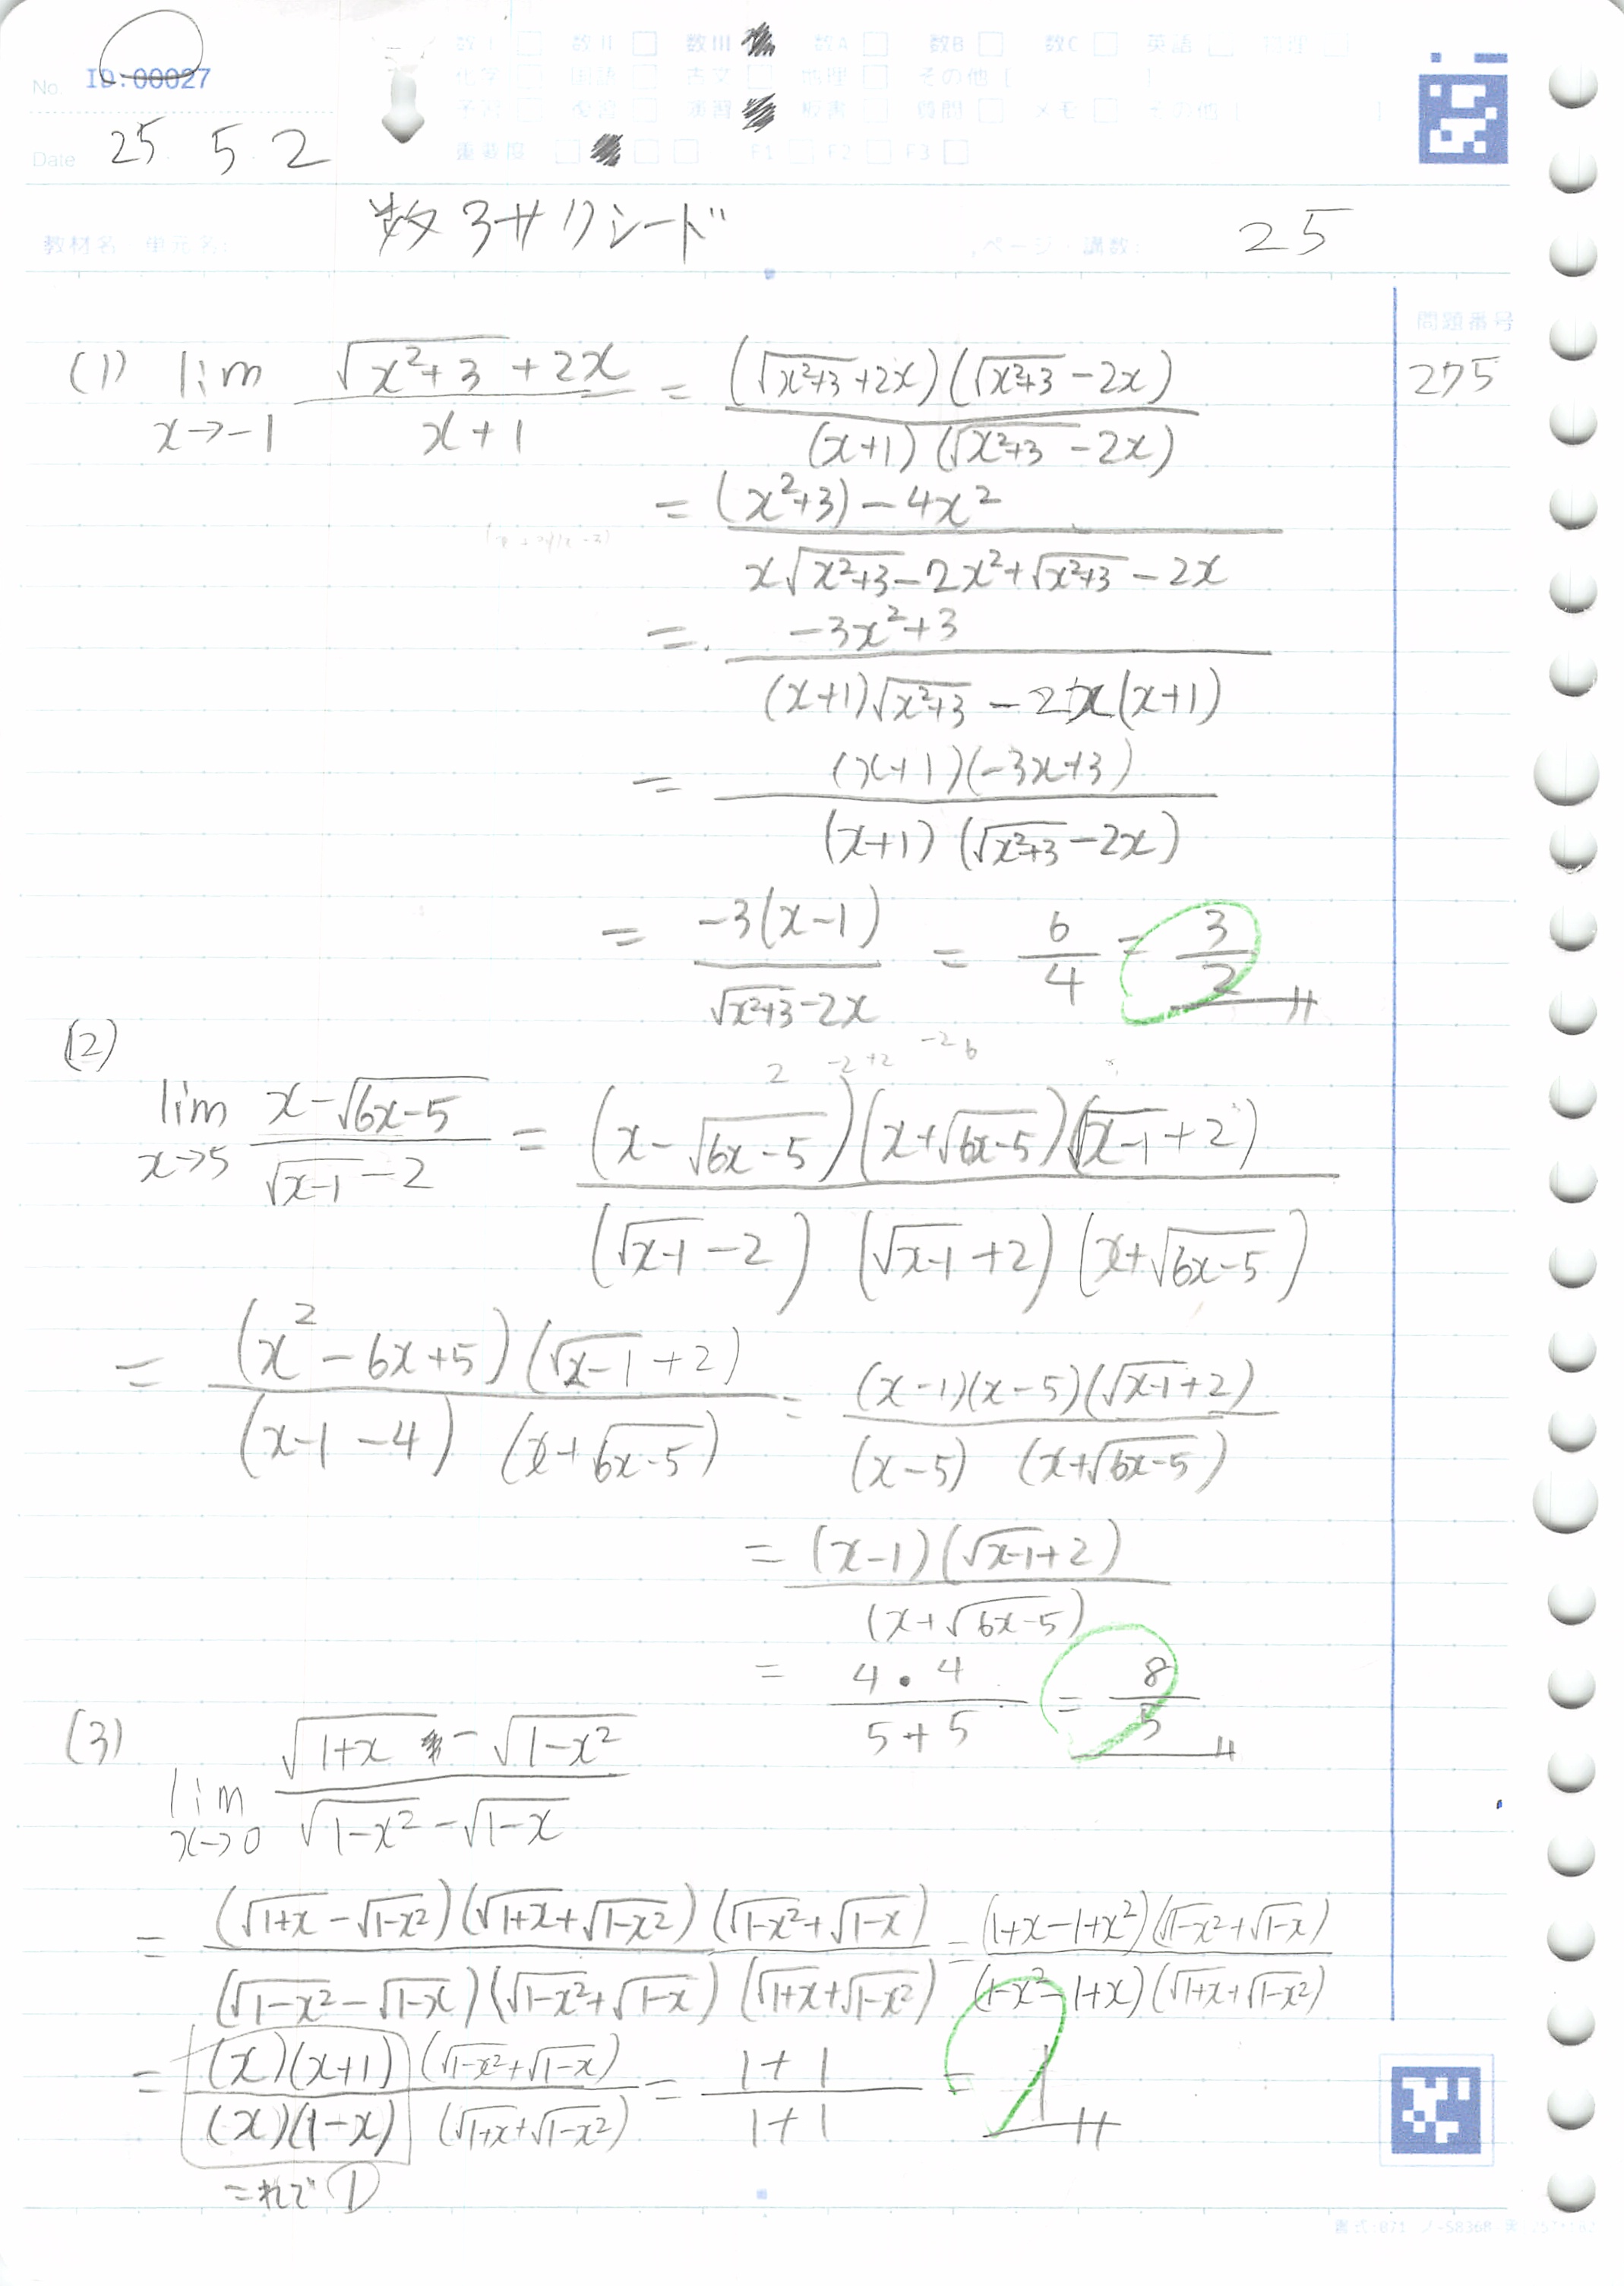 No. ID:00027
数I □ 数II □ 数III 数A □ 数B □ 数C □ 英語 □ 物理 □
化学 □ 国語 □ 古文 □ 地理 □ その他 [ ]
予習 □ 復習 □ 演習 板書 □ 質問 □ メモ □ その他 [ ]
Date 25. 5. 2
重要度 □ □ □ F1 □ F2 □ F3 □
教材名・単元名: 数3サクシード ページ・講数: 25
問題番号
275
(1) lim x→-1 (√(x²+3) + 2x)/(x+1) = (√(x²+3) + 2x)(√(x²+3) - 2x)/((x+1)(√(x²+3) - 2x))
= ((x²+3) - 4x²)/(x√(x²+3) - 2x² + √(x²+3) - 2x)
= (-3x²+3)/((x+1)√(x²+3) - 2x(x+1))
= (x+1)(-3x+3)/((x+1)(√(x²+3) - 2x))
= -3(x-1)/(√(x²+3) - 2x) = 6/4 = 3/2
(2)
lim x→5 (x - √(6x-5))/(√(x-1) - 2) = (x - √(6x-5))(x + √(6x-5))(√(x-1) + 2)/((√(x-1) - 2)(√(x-1) + 2)(x + √(6x-5)))
= (x² - 6x + 5)(√(x-1) + 2)/((x-1-4)(x + √(6x-5))) = (x-1)(x-5)(√(x-1) + 2)/((x-5)(x + √(6x-5)))
= (x-1)(√(x-1) + 2)/(x + √(6x-5))
= 4・4/(5+5) = 8/5
(3)
lim x→0 (√(1+x) - √(1-x²))/(√(1-x²) - √(1-x))
= (√(1+x) - √(1-x²))(√(1+x) + √(1-x²))(√(1-x²) + √(1-x))/((√(1-x²) - √(1-x))(√(1-x²) + √(1-x))(√(1+x) + √(1-x²))) = (1+x-1+x²)(√(1-x²) + √(1-x))/((1-x²-1+x)(√(1+x) + √(1-x²)))
= (x)(x+1)(√(1-x²) + √(1-x))/((x)(1-x)(√(1+x) + √(1-x²))) = (1+1)/(1+1) = 1
これで①